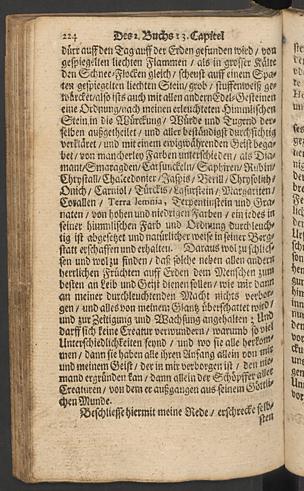 224 Des 1. Buchs 13. Capitel
dürr auff den Tag auff der Erden gefunden wird / von
gespiegelten liechten Flammen / als in grosser Kälte
den Schnee-Flocken gleich / scheust auff einem Spa-
ten gespiegelten liechten Stein / grob / stuffenweiß ge-
würcket / also ists auch mit allen andern Edel-Gesteinen
eine Ordnung / nach meinen erleuchteten Himmlischen
Stein in die Würckung / Würde und Tugend der-
selben außgetheilet / und aller beständigst durchsichtig
verkläret / und mit einem ewigwährenden Geist bega-
bet / von mancherley Farben unterschieden / als Dia-
mant / Smaragden / Carfunckeln / Saphiren / Rubin /
Chrystall / Chalcedonier / Jaspis / Berill / Chrysolith /
Onich / Carniol / Türckis / Lasurstein / Margariten /
Corallen / Terra lemnia, Terpentinstein und Gra-
naten / von hohen und niedrigen Farben / ein jedes in
seiner himmlischen Farb und Ordnung durchleuch-
tig ist abgesetzet und natürlicher weise in seiner Berg-
statt erschaffen und erhalten. Daraus wol zu schlies-
sen und wol zu finden / daß solche neben allen andern
herrlichen Früchten auff Erden dem Menschen zum
besten an Leib und Geist dienen sollen / wie mir dann
an meiner durchleuchtenden Macht nichts verbor-
gen / und alles von meinem Glantz überschattet wird /
und zur Zeitigung und Wachsung angehalten: Und
darff sich keine Creatur verwundern / warumb so viel
Unterschiedlichkeiten seynd / und wo sie alle herkom-
men / dann sie haben alle ihren Anfang allein von mir
und meinem Geist / der in mir verborgen ist / den nie-
mand ergründen kan / dann allein der Schöpffer aller
Creaturen / von dem er außgangen aus seinem Göttli-
chen Munde.
Beschliesse hiermit meine Rede / erschrecke selb-
sten